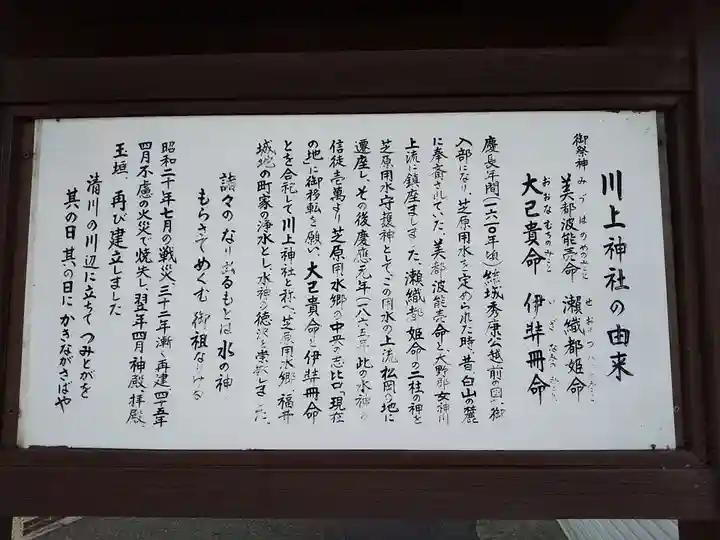 川上神社の由来
御祭神
みづはのめのみこと
美都波能売命
瀬織都姫命
おおなむちのみこと
大己貴命
伊弉冊命
慶長年間(一六一〇年頃)結城秀康公越前の国、御
入部になり、芝原用水を定められた時、昔白山の麓
に奉斎されていた、美都波能売命と、大野郡女神川
上流に鎮座ましました、瀬織都姫命の二柱の神を
芝原用水守護神としてこの用水の上流松岡の地に
遷座し、その後慶應元年(一八六五年)此の水神の
信徒壱萬より芝原用水郷の中央の志比口「現在
の地」に御移転を願い、大己貴命と伊弉冊命
とを合祀して川上神社と称へ芝原用水郷、福井
城地の町家の浄水とし、水神の徳沢を崇敬しました、
諸々の なり出るもとは 水の神
もらさでめぐむ 御祖なりける
昭和二十年七月の戦災、三十二年漸く再建四十五年
四月不慮の火災で焼失し、翌年四月神殿、拝殿、
玉垣、再び建立しました
清川の川辺に立ちて つみとがを
其の日 其の日に かきながさばや